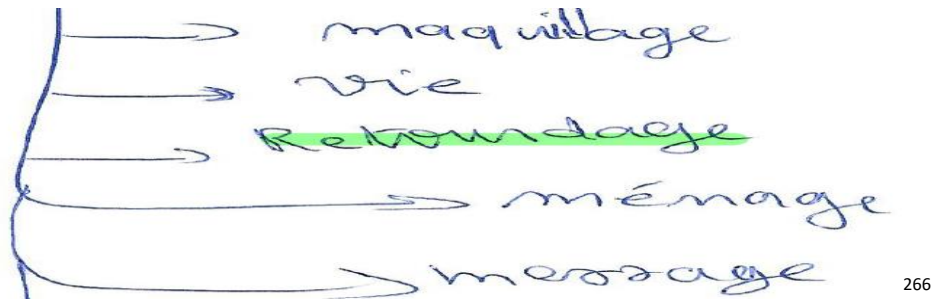 maquillage
vie
Retroundage
ménage
message
266